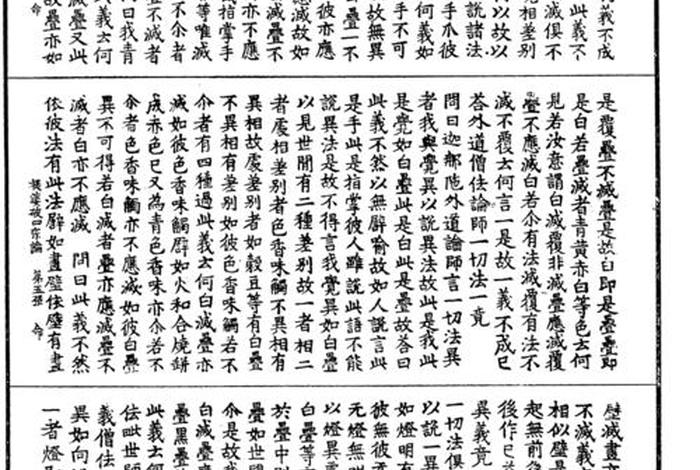 義不成
此義不
滅俱不
相差別
以故以
說諸法
手爪彼
何義如
手不可
故無異
疊一不
彼亦應
應滅故如
滅疊不
亦不應
指掌手
等唯滅
不尒者
不滅者
曰我青
義云何
滅疊又此
故疊亦如
是覆疊不滅疊是故白即是疊疊即
是白若疊滅者青黃亦白等色云何
見若汝意謂白滅覆非滅疊應滅覆
疊不應滅白若尒有法滅覆有法不
滅不覆云何言一是故一義不成已
荅外道僧佉論師一切法一竟
問曰迦那陁外道論師言一切法異
者我與覺異以說異法故此是我此
是覺如白疊此是白此是疊故荅曰
此義不然以無譬喻故如人說言此
是手此是指掌彼人雖說此語不能
說異法是故不得言我覺異如白疊
以見世間有二種差別故一者相二
者處相差別者色香味觸不異相有
異相故處差別者如穀豆等有白疊
不異相有差別如彼色香味觸若不
尒者有四種過此義云何白滅疊亦
滅如彼色香味觸譬如火和合燒鉼
戍赤色已又為青色香味亦尒若不
尒者色香味觸亦不應滅如彼白疊
異不可得若白滅者疊亦應滅疊不
滅者白亦不應滅 問曰此義不然
依彼法有此法譬如畫壁依壁有畫
提婆破四宗論 第五張 命
壁滅畫亦
不滅義
相似壁是
起無前後
後作已
異義竟
一切法俱
以說一異
如燈明有
彼無彼
無燈無明
以燈異
白疊等
於疊中
疊如世間
尒是故我
白滅疊應
疊黑疊
此義云何
佉毗世師
義僧佉
異如向
一者燈